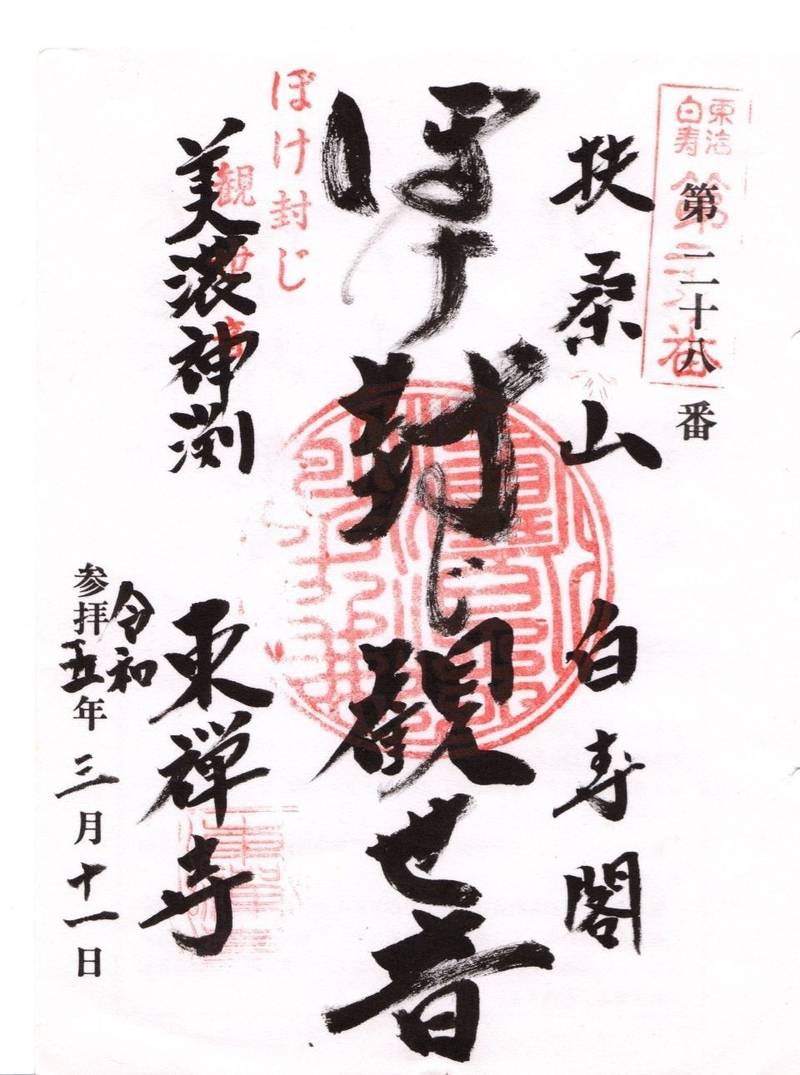 東海
白寿
第二十八番
扶桑山 白寿閣
ぼけ封じ観せ音
ぼけ封じ
観世音
美濃神渕
東禅寺
令和
参拝五年三月十一日